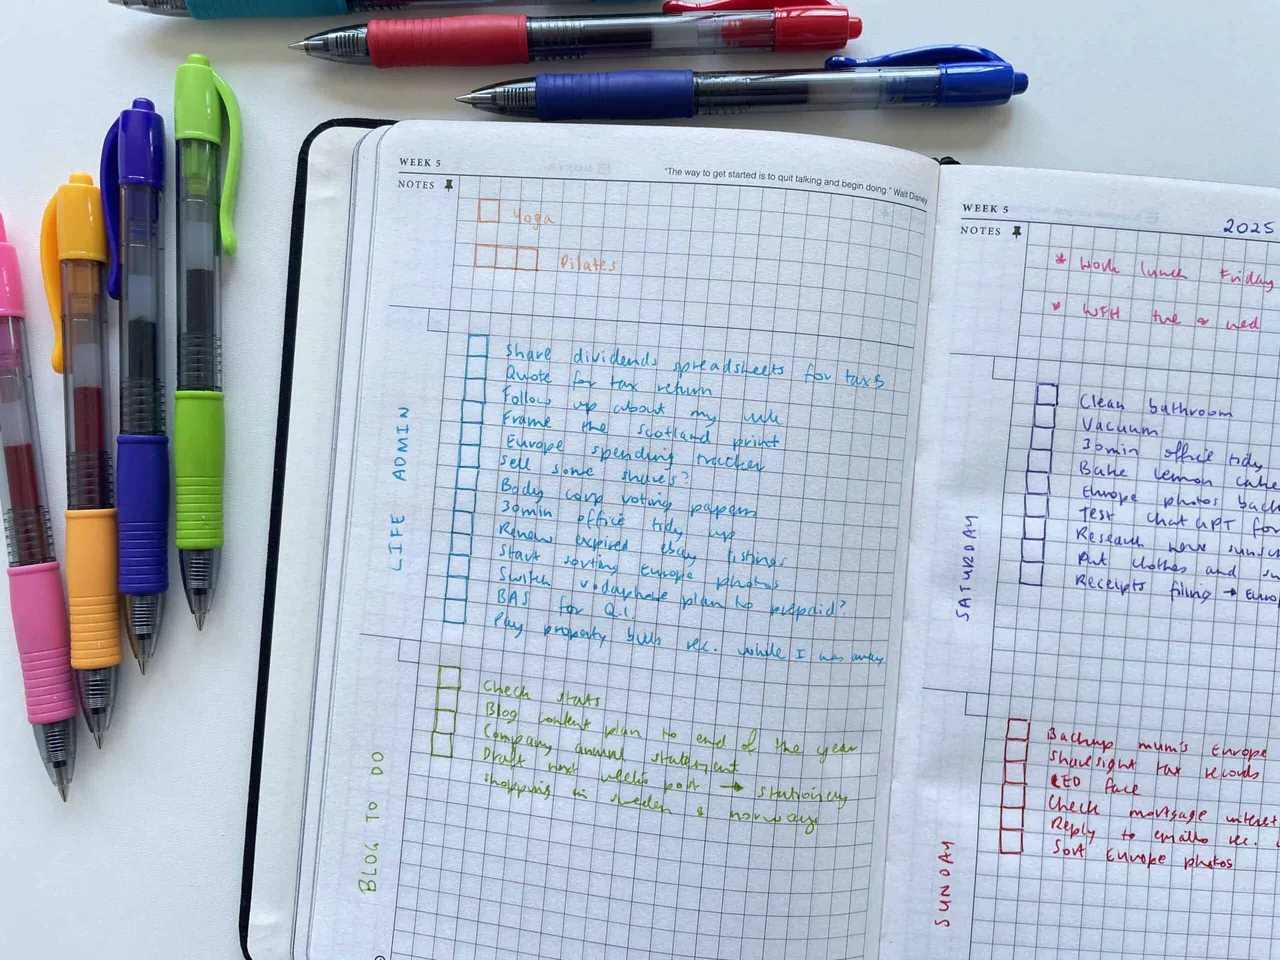 WEEK 5
"The way to get started is to quit talking and begin doing." Walt Disney
NOTES
Yoga
Pilates
LIFE ADMIN
Share dividends spreadsheets for taxes
Quote for tax return
Follow up about my
Frame the Scotland print
Europe spending tracker
Sell some shares?
Body corp voting papers
30min office tidy up
Renew expired ebay listings
Start sorting Europe photos
Switch vodaphone plan to prepaid?
BAS for Q1
Pay property bills rec. while I was away
BLOG TO DO
Check stats
Blog content plan to end of the year
Company annual statement
Draft next week's post → stationery
shopping in sweden & norway
WEEK 5
2025
NOTES
* Work lunch Friday
* WFH tue & wed
SATURDAY
Clean bathroom
Vacuum
30min office tidy
Bake lemon cake
Europe photos back
Test chat GPT for
Research
Put clothes and
Receipts filing → Euro
SUNDAY
Backup mum's Europe
Sharesight tax records
LED face
Check mortgage interest
Reply to emails rec.
Sort Europe photos